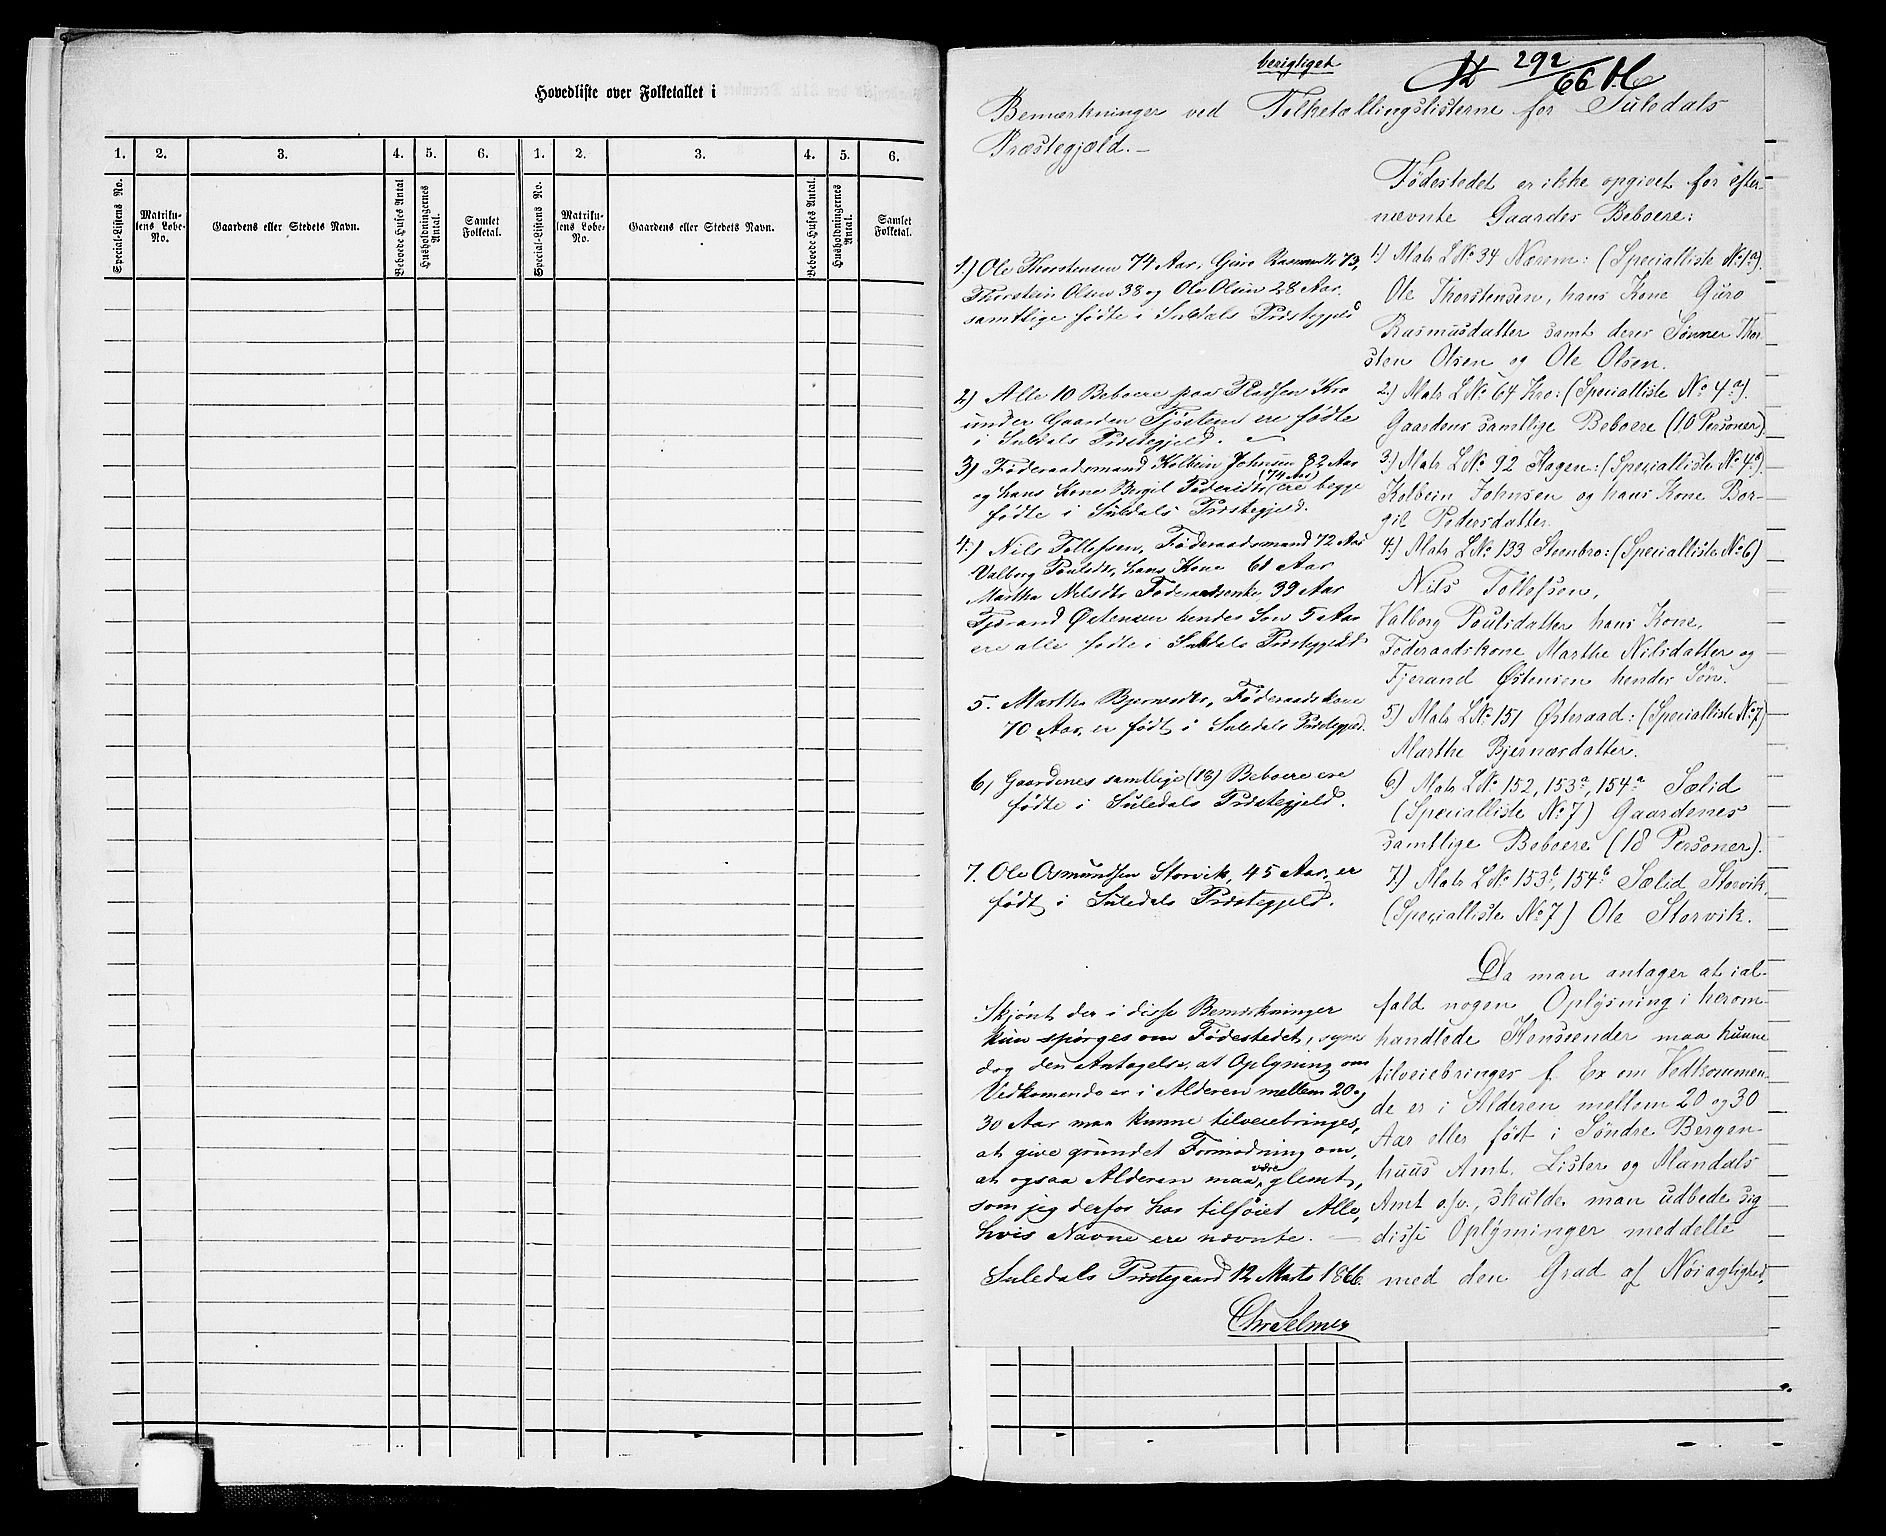 Hovedliste over Folketallet i
1. 2. 3. 4. 5. 6. 1. 2. 3. 4. 5. 6.
Special-Listens No.
Matriku-
lens Løbe-
No.
Gaardens eller Stedets Navn.
Beboede Huses Antal
Husholdningernes
Antal.
Samlet
Folketal.
Special-Listens No.
Matriku-
lens Løbe-
No.
Gaardens eller Stedets Navn.
Beboede Huses Antal.
Husholdningernes
Antal.
Samlet
Folketal.
berigtiget
292/66
Bemærkninger ved Folketællingslisterne for Suledals
Præstegjæld.—
Fødestedet er ikke opgivet for efter-
nævnte Gaardes Beboere:
1) Matr LNo 34 Nærem: (Specialliste No 1a).
Ole Thorstensen, hans Kone Guro
Rasmusdatter samt deres Sønner Thor-
sten Olsen og Ole Olsen.
2) Matr LNo 64 Kro: (Specialliste No 4a).
Gaardens samtlige Beboere (10 Personer).
3) Matr LNo 92 Hagen: (Specialliste No 4b).
Kolbein Johnsen og hans Kone Bor-
gil Pedersdatter.
4) Matr LNo 133 Steenbro: (Specialliste No 6)
Nils Tollefsen,
Valborg Poulsdatter hans Kone,
Føderaadskone Marthe Nilsdatter og
Fjerand Østensen hendes Søn.
5) Matr LNo 151 Østeraad: (Specialliste No 7)
Marthe Bjernærdatter.
6) Matr LNo 152, 153a, 154a Sælid
(Specialliste No 7) Gaardenes
samtlige Beboere (18 Personer).
7) Matr LNo 153b, 154b Sælid Storvik,
(Specialliste No 7) Ole Storvik.
Da man antager at ial-
fald nogen Oplysning i herom-
handlede Henseender maa kunne
tilveiebringes f. Ex om Vedkommen-
de er i Alderen mellem 20 og 30
Aar eller født i Søndre Bergen-
huus Amt, Lister og Mandals
Amt o.s.v., skulde man udbede sig
disse Oplysninger meddelte
med den Grad af Nøiagtighed,
1) Ole Thorstensen 74 Aar, Guro Rasmusdtr 73,
Thorstein Olsen 38 og Ole Olsen 28 Aar.
samtlige fødte i Suldals Præstegjeld
2) Alle 10 Beboere paa Pladsen Kro
under Gaarden ere fødte
i Suldals Præstegjeld.
3) Føderaadsmand Kolbein Johnsen 82 Aar
og hans Kone Borgil Pedersdtr (74 Aar) ere begge
fødte i Suldals Præstegjeld.
4.) Nils Tollefsen, Føderaadsmand 72 Aar
Valborg Poulsdtr, hans Kone 61 Aar
Martha Nelsdtr Føderaadsenke 39 Aar
Fjerand Østensen hendes Søn 5 Aar
ere alle fødte i Suldals Præstegjeld
5. Martha Bjernesdtr, Føderaadskone
70 Aar, er født i Suledals Præstegjeld.
6, Gaardenes samtlige (18) Beboere ere
fødte i Suledals Præstegjeld.
7. Ole Osmundsen Storvik, 45 Aar, er
født i Suledals Præstegjeld.
Skjønt der i disse Bemærkninger
kun spørges om Fødestedet, synes
dog den Antagelse, at Oplysning om
Vedkomende er i Alderen mellem 20 og
30 Aar maa kunne tilveiebringes,
at give grundet Formodning om,
at ogsaa Alderen maa være glemt,
som jeg derfor har tilføiet Alle,
hvis Navne ere nævnte.
Suledals Præstegaard 12 Marts 1866.
Chr Selmer